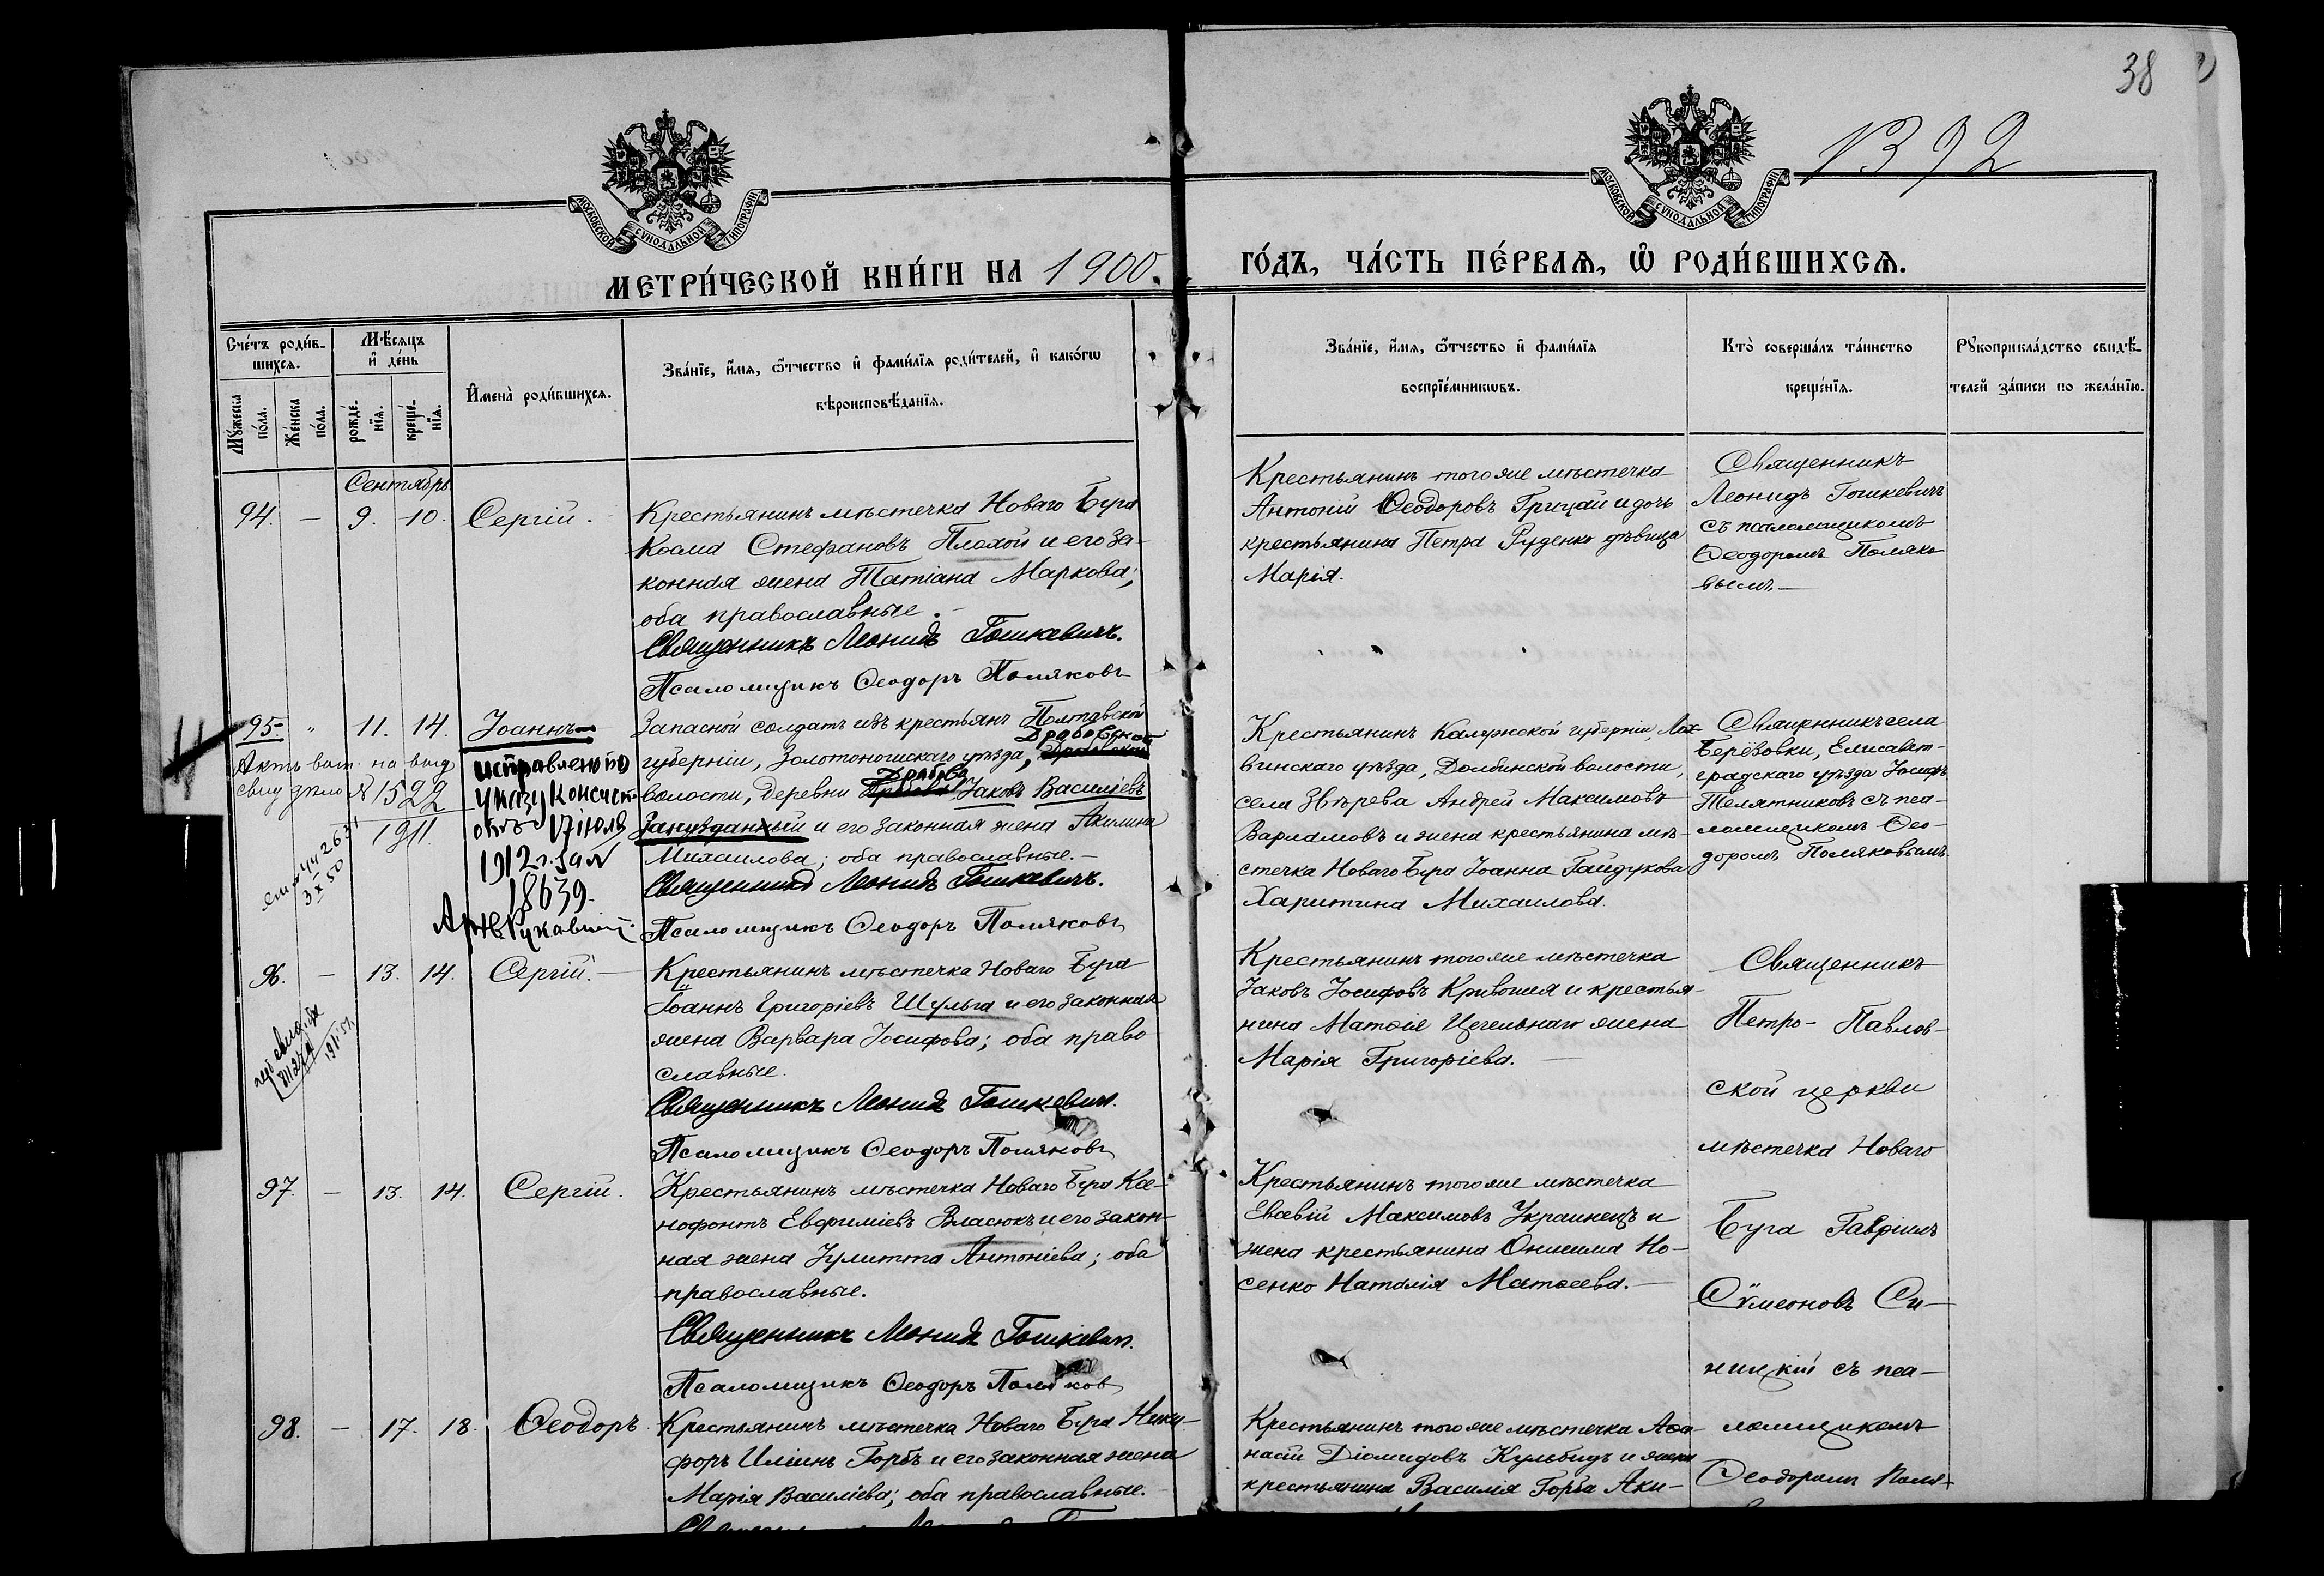 38
1392
МОСКОВСКОЙ СУНОДАЛЬНОЙ ТИПОГРАФІИ
МОСКОВСКОЙ СУНОДАЛЬНОЙ ТИПОГРАФІИ
МЕТРИ́ЧЕСКОЙ КНИ́ГИ НА 1900.
ГО́ДЪ, ЧА́СТЬ ПЕ́РВАЯ, Ѡ РОДИ́ВШИХСЯ.
Сче́тъ роди́в-
шихся.
Мꙋ́жеска по́ла.
Же́нска по́ла.
Мѣ́сяцъ и҆ де́нь
рожде́-
нїя.
креще́-
нїя.
И҆мена̀ роди́вшихся.
Зва́нїе, и҆́мя, ѻ҆́тчество и҆ фами́лїя роди́телей, и҆ како́гѡ
вѣроисповѣ́данїя.
Зва́нїе, и҆́мя, ѻ҆́тчество и҆ фами́лїя
воспрїе́мникѡвъ.
Кто̀ соверша́лъ та́инство
креще́нїя.
Рꙋкоприкла́дство свидѣ́-
телей за́писи по жела́нїю.
Сентябрь
94. — 9. 10. Сергій.
Крестьянинъ мѣстечка Новаго Буга
Косма Стефановъ Плохой и его за-
конная жена Татіана Маркова;
оба православные.—
Священникъ Леонидъ Гошкевичъ.
Псаломщикъ Ѳеодоръ Поляковъ
Крестьянинъ того же мѣстечка
Антоній Ѳеодоровъ Грицай и дочь
крестьянина Петра Руденко дѣвица
Марія.
Священникъ
Леонидъ Гошкевичъ
съ псаломщикомъ
Ѳеодоромъ Поляко-
вымъ.—
95. " 11. 14. Іоаннъ
Запасной солдатъ изъ крестьянъ Полтавской
Драбовской
губерніи, Золотоношскаго уѣзда,
Драбова
волости, деревни Іаковъ Василіевъ
Занузданный и его законная жена Акилина
Михаилова; оба православные.—
Священникъ Леонидъ Гошкевичъ.
Псаломщикъ Ѳеодоръ Поляковъ
исправлено по
указу Консист.
отъ 17 іюля
1912 г. за №
18639.
№ 1522
1911.
Крестьянинъ Калужской губерніи, Лих-
винскаго уѣзда, Долбинской волости,
села Звѣрева Андрей Максимовъ
Варламовъ и жена крестьянина мѣ-
стечка Новаго Буга Іоанна Гайдукова
Харитина Михаилова.
Священникъ села
Березовки, Елисавет-
градскаго уѣзда Іосифъ
Телятниковъ съ пса-
ломщикомъ Ѳео-
доромъ Поляковымъ.
96. — 13. 14. Сергій.—
Крестьянинъ мѣстечка Новаго Буга
Іоаннъ Григоріевъ Шульга и его законная
жена Варвара Іосифова; оба право
славные.
Священникъ Леонидъ Гошкевичъ.
Псаломщикъ Ѳеодоръ Поляковъ
Крестьянинъ того же мѣстечка
Іаковъ Іосифовъ Кривошея и крестья-
нина Матѳія Цегельнаго жена
Марія Григоріева.—
Священникъ
Петро-Павлов-
ской церкви
мѣстечка Новаго
Буга Гавріилъ
Сѵмеоновъ Си-
ницкій съ пса-
ломщикомъ
Ѳеодоромъ Поля-
97. — 13. 14. Сергій.
Крестьянинъ мѣстечка Новаго Буга Ксе-
нофонтъ Евфиміевъ Власюкъ и его закон-
ная жена Іулитта Антоніева; оба
православные.
Священникъ Леонидъ Гошкевичъ.
Псаломщикъ Ѳеодоръ Поляковъ
Крестьянинъ того же мѣстечка
Евсевій Максимовъ Украинецъ и
жена крестьянина Онисима Но-
сенко Наталія Матѳеева.—
98. — 17. 18. Ѳеодоръ
Крестьянинъ мѣстечка Новаго Буга Ники-
форъ Иліинъ Горбъ и его законная жена
Марія Василіева; оба православные.
Крестьянинъ того же мѣстечка Аѳа-
насій Діомидовъ Кульбидъ и жена
крестьянина Василія Горба Аки-